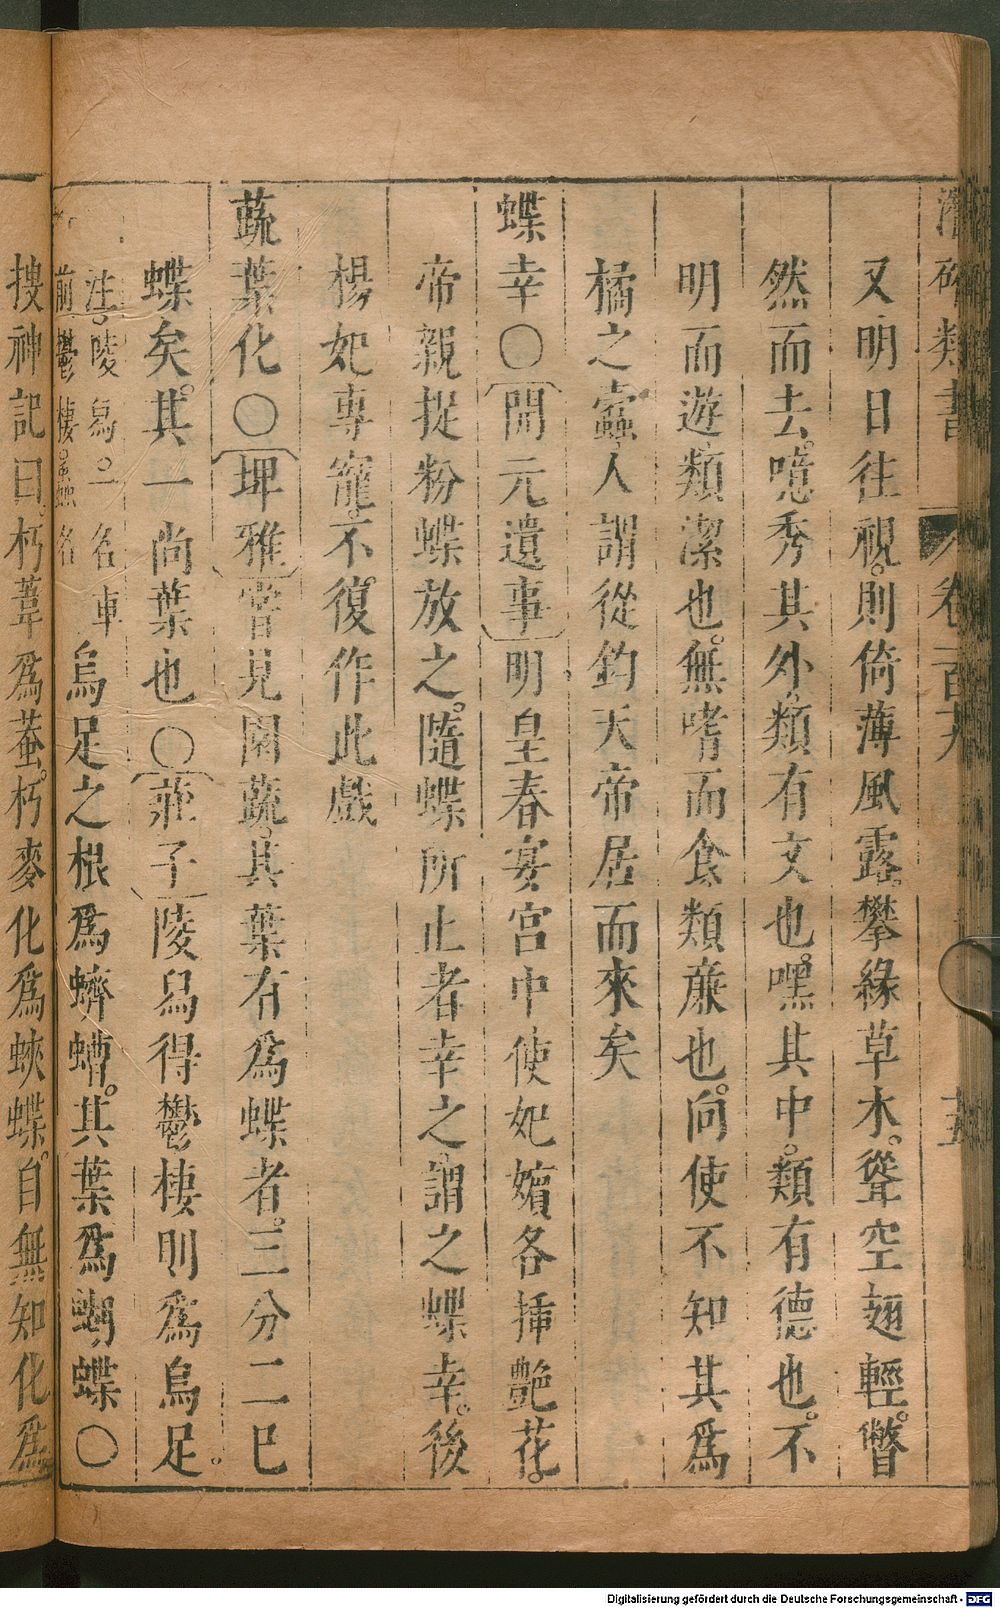 潛確類書 卷一百九 十五
又明日往視。則倚薄風露。攀緣草木。聳空翅輕。瞥
然而去。噫秀其外。類有文也。嘿其中。類有德也。不
明而遊類潔也。無嗜而食類廉也。向使不知其爲
橘之蠹。人謂從鈞天帝居而來矣
蝶幸〇開元遺事明皇春宴宮中使妃嬪各揷艷花。
帝親捉粉蝶放之。隨蝶所止者幸之。謂之蝶幸。後
楊妃專寵。不復作此戲
蔬葉化〇埤雅嘗見園蔬。其葉有爲蝶者。三分二已
蝶矣。其一尚葉也〇莊子陵舄得鬱棲則爲烏足。
注。陵舄。一名車
前鬱棲。蟲名
烏足之根爲蠐螬。其葉爲蝴蝶〇
搜神記曰。朽葦爲蛬。朽麥化爲蛺蝶。自無知化爲
Digitalisierung gefördert durch die Deutsche Forschungsgemeinschaft - DFG